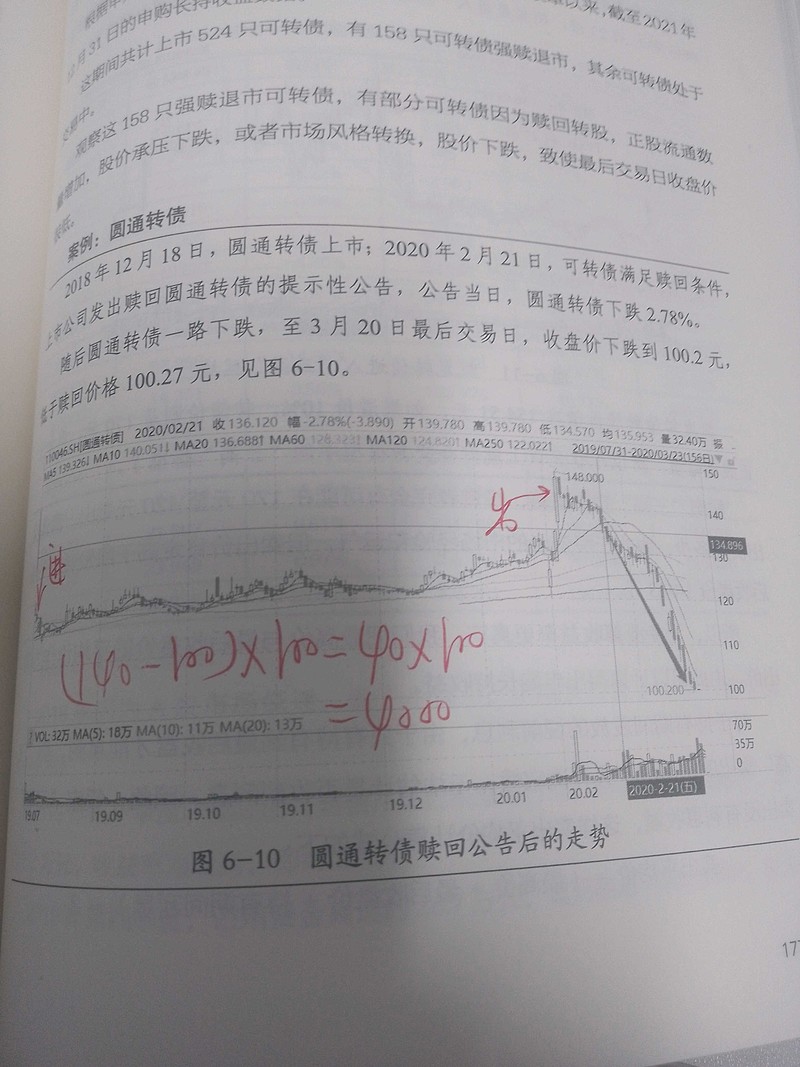 以来，截至2021年
月31日的申购长持收益
这期间共计上市524只可转债，有158只可转债强赎退市，其余可转债处于
交易中。
观察这158只强赎退市可转债，有部分可转债因为赎回转股，正股流通数
量增加，股价承压下跌，或者市场风格转换，股价下跌，致使最后交易日收盘价
较低。
案例：圆通转债
2018年12月18日，圆通转债上市；2020年2月21日，可转债满足赎回条件，
上市公司发出赎回圆通转债的提示性公告，公告当日，圆通转债下跌2.78%。
随后圆通转债一路下跌，至3月20日最后交易日，收盘价下跌到100.2元，
低于赎回价格100.27元，见图6-10。
110046.SH[圆通转债] 2020/02/21 收136.120 幅-2.78%(-3.890) 开139.780 高139.780 低134.570 均135.953 量32.40万 振
MA5 139.326↓ MA10 140.051↓ MA20 136.688↑ MA60 128.323↑ MA120 124.820↑ MA250 122.022↑ 2019/07/31-2020/03/23(156日)
150
148.000
出
140
134.896
130
进
120
110
(140-100)×100=40×100
100.200
100
=4000
VOL: 32万 MA(5): 18万 MA(10): 11万 MA(20): 13万
70万
35万
0
19.07 19.09 19.10 19.11 19.12 20.01 20.02 2020-2-21(五)
图6-10 圆通转债赎回公告后的走势